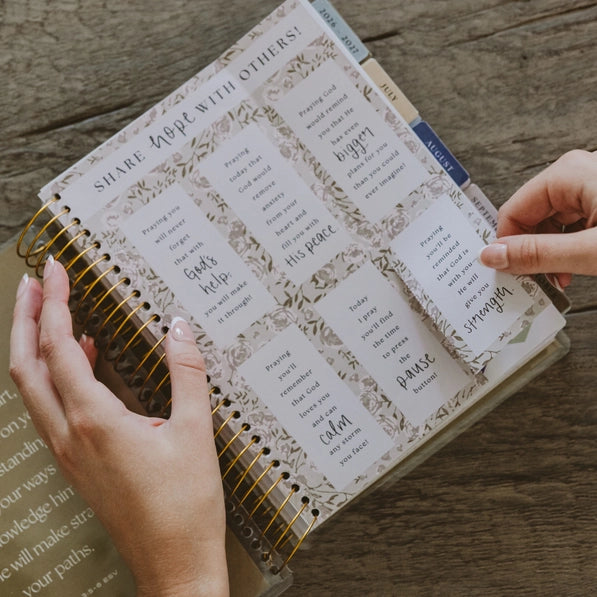 SHARE hope WITH OTHERS!
Praying you
will never
forget
that with
God's
help,
you will make
it through!
Praying
today that
God would
remove
anxiety
from your
heart and
fill you with
His peace
Praying God
would remind
you that He
has even
bigger
plans for you
than you could
ever imagine!
Praying
you'll
remember
that God
loves you
and can
calm
any storm
you face!
Today
I pray
you'll find
the time
to press
the
pause
button!
Praying
you'll be
reminded
that God is
with you.
He will
give you
strength.
2026
2027
JULY
AUGUST
on you
standing
your ways
knowledge him
he will make straight
your paths.
ESV